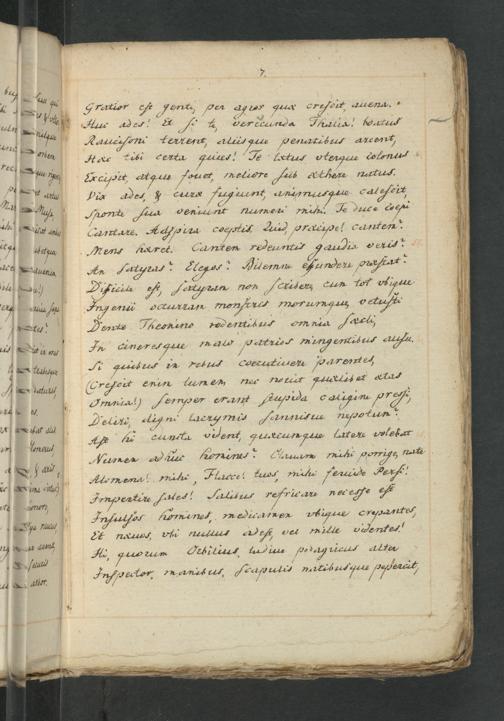 7.
Gratior est genti, per agros quæ crescit, auena.
Huc ades! Et si te, verecunda Thalia! boatus
Raucisoni terrent, aliisque penatibus arcent,
Hæc tibi certa quies! Te lætus vterque colonus
Excipit, atque fouet, meliore sub æthere natus.
Vix ades, & curæ fugiunt, animusque calescit,
Sponte sua veniunt numeri mihi. Te duce coepi
Cantare. Adspira coeptis. Quid, præcipe! cantem?
Mens hæret. Cantem redeuntis gaudia veris?
An Satyras? Elegos? Bilemne effundere præstat?
Difficile est, Satyram non scribere, cum tot vbique
Ingenii occurrant monstris morumque, vetusti
Dente Theonino rodentibus omnia Sæcli,
In cineresque malo patrios mingentibus ausu.
Si quibus in rebus coecutiuere parentes,
(Crescit enim lumen, nec nocuit quælibet ætas
Omnia!) semper erant stupida caligine pressi,
Deliri, digni lacrymis sannisue nepotum?
Ast hi cuncta vident, quæcunque latere volebat
Numen adhuc homines? Clauam mihi porrige, nate
Alcmena! mihi, Flacce! tuos, mihi feruide Persi!
Impertire sales! Salibus refricare necesse est
Insulsos homines, medicamen vbique crepantes,
Et næuos, vbi nullus adest, vel mille videntes!
Hi, quorum Orbilius, ludiue pedagicus alter
Inspector, manibus, scapulis natibusque pepercit,